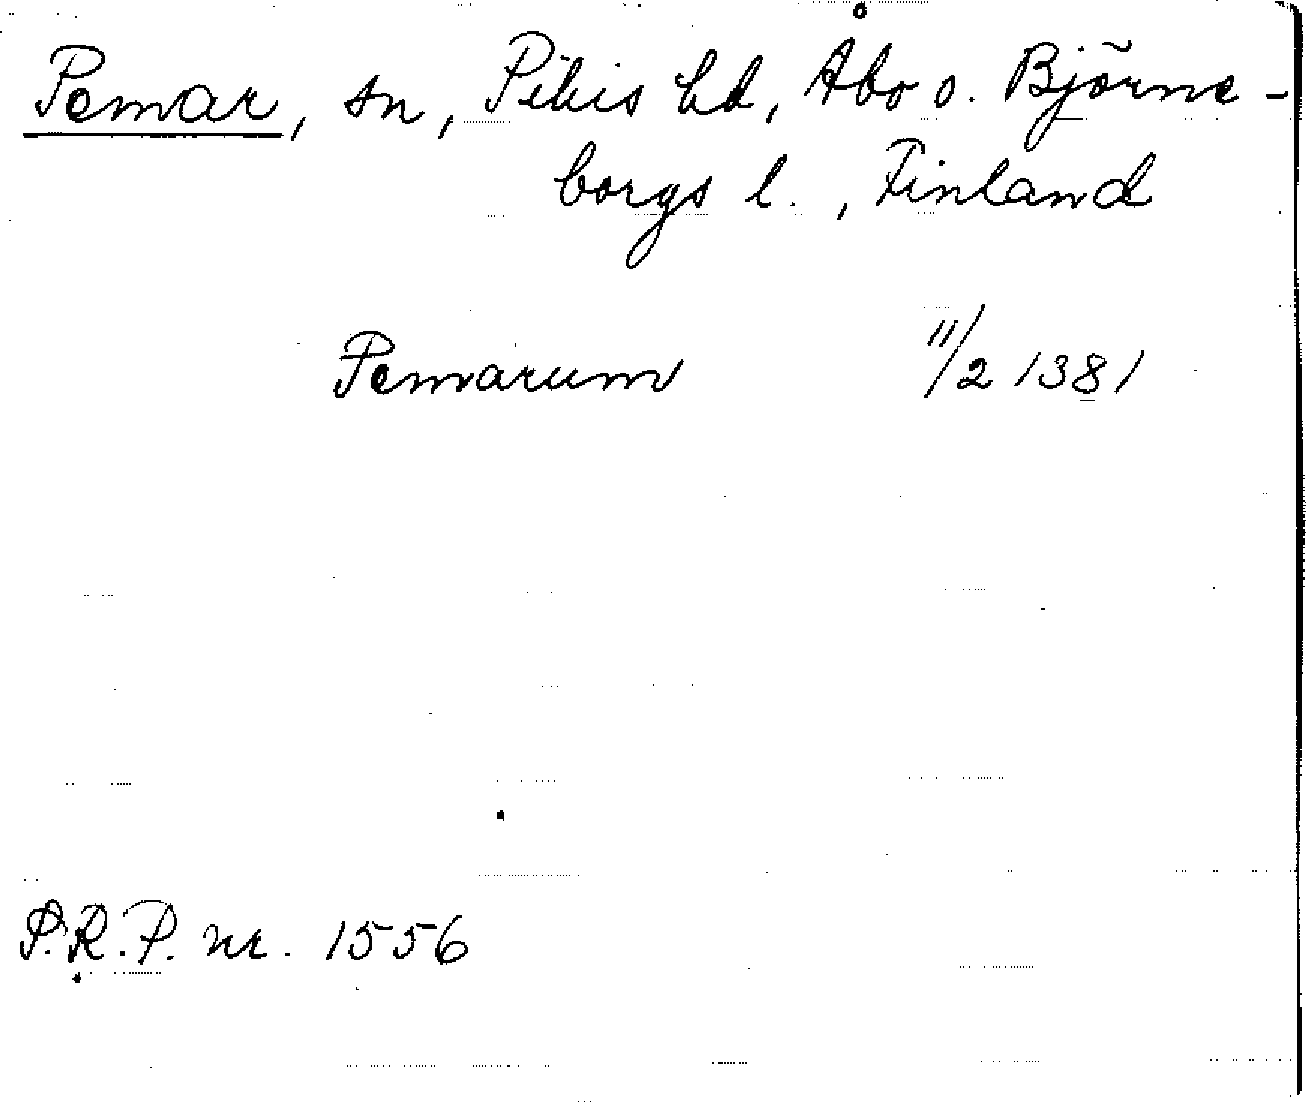 Pemar, sn, Pikis hd, Åbo o. Björne-
borgs l., Finland
Pemarum 11/2 1381
P.R.P. nr. 1556